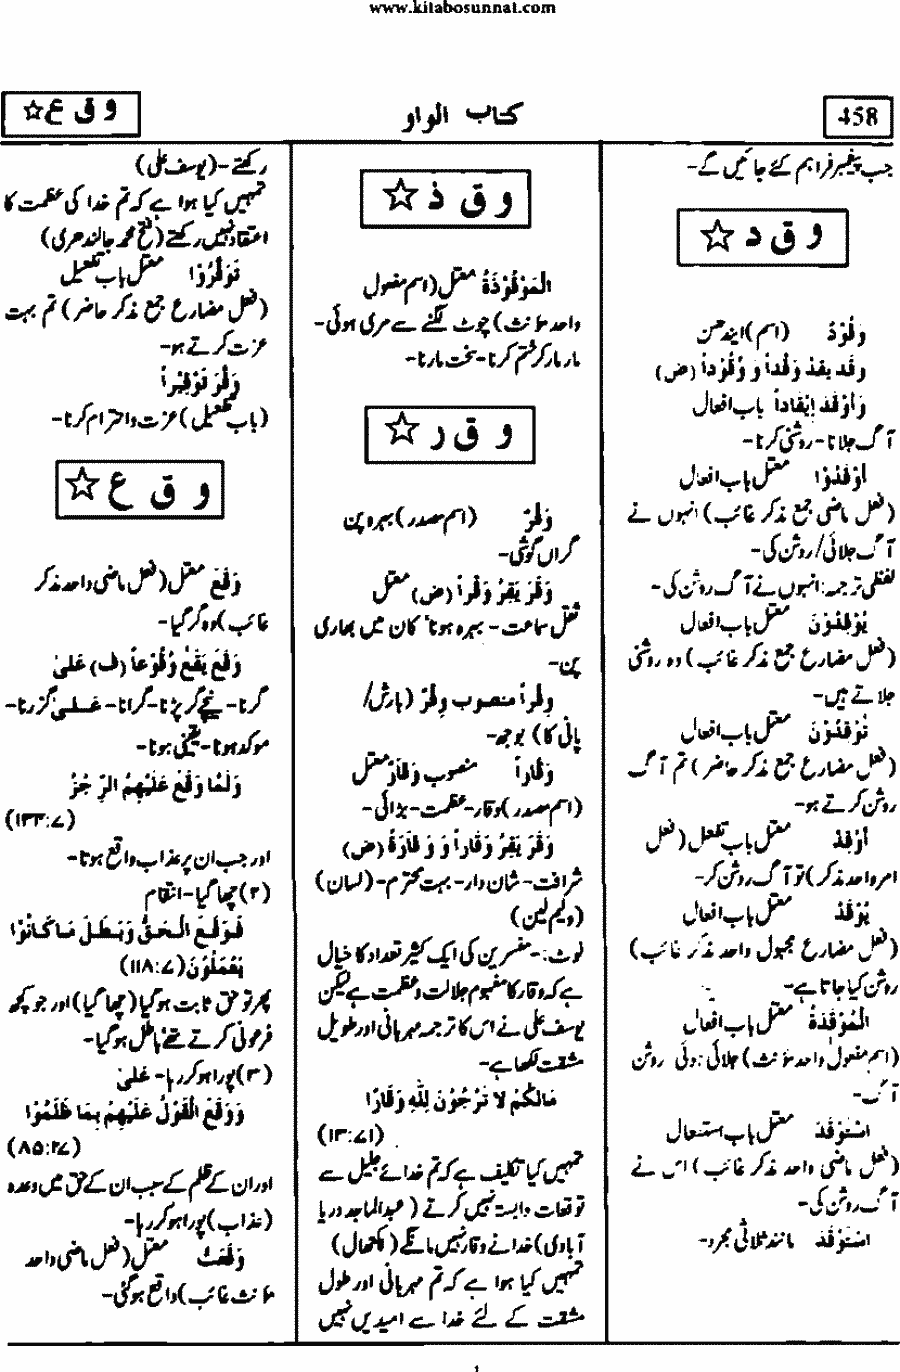 www.kitabosunnat.com
458
كتاب الواو
و ق ع ☆
جب پیغمبر فراہم کئے جائیں گے۔
و ق د ☆
وَقُوْدُ (اسم) ایندھن
وقَد یقِدُ وَقْداً و وُقُوْداً (ض)
وَاَوْقَد اِيْقَاداً باب افعال
آگ جلانا۔ روشنی کرنا۔
اَوْقَدُوْا معتل باب افعال
(فعل ماضی جمع مذکر غائب) انہوں نے
آگ جلائی/ روشن کی۔
لفظی ترجمہ: انہوں نے آگ روشن کی۔
يُوْقِدُوْنَ معتل باب افعال
(فعل مضارع جمع مذکر غائب) وہ روشنی
جلاتے ہیں۔
تُوْقِدُوْنَ معتل باب افعال
(فعل مضارع جمع مذکر حاضر) تم آگ
روشن کرتے ہو۔
اَوْقِدْ معتل باب تفعل (فعل
امر واحد مذکر) تو آگ روشن کر۔
يُوْقَدُ معتل باب افعال
(فعل مضارع مجہول واحد مذکر غائب)
روشن کیا جاتا ہے۔
الْمُوْقَدَةُ معتل باب افعال
(اسم مفعول واحد مؤنث) جلائی ہوئی روشن
آگ۔
اسْتَوْقَدَ معتل باب استفعال
(فعل ماضی واحد مذکر غائب) اس نے
آگ روشن کی۔
اسْتَوْقَدَ مانند ثلاثی مجرد۔
و ق ذ ☆
الْمَوْقُوْذَةُ معتل (اسم مفعول
واحد مؤنث) چوٹ لگنے سے مری ہوئی۔
مار مار کر ختم کرنا۔ سخت مارنا۔
و ق ر ☆
وَقْرٌ (اسم مصدر) بہرہ پن
گراں گوشی۔
وَقَرَ يَقِرُ وَقْراً (ض) معتل
ثقل سماعت۔ بہرہ ہونا' کان میں بھاری
پن۔
وِقْراً منصوب وِقْرٌ (بارش/
پانی کا) بوجھ۔
وَقَاراً منصوب وَقَارٌ معتل
(اسم مصدر) وقار۔ عظمت۔ بڑائی۔
وَقَرَ يَقِرُ وَقَاراً وَ وَقَارَةً (ض)
شرافت۔ شان دار۔ بہت محترم۔ (لسان)
(ولیم لین)
نوٹ:۔ مفسرین کی ایک کثیر تعداد کا خیال
ہے کہ وقار کا مفہوم جلالت و عظمت ہے لیکن
یوسف علی نے اس کا ترجمہ مہربانی اور طویل
مشقت لکھا ہے۔
مَالَكُمْ لاَ تَرْجُوْنَ لِلّٰهِ وَقَارًا
(۱۳:۷۱)
تمہیں کیا تکلیف ہے کہ تم خدائے جلیل سے
توقعات وابستہ نہیں کرتے (عبدالماجد دریا
آبادی) خدا نے وقار نہیں مانگے (پکتھال)
تمہیں کیا ہوا ہے کہ تم مہربانی اور طول
مشقت کے لئے خدا سے امیدیں نہیں
رکھتے۔ (یوسف علی)
تمہیں کیا ہوا ہے کہ تم خدا کی عظمت کا
اعتقاد نہیں رکھتے (فتح محمد جالندھری)
تُوَقِّرُوْا معتل باب تفعیل
(فعل مضارع جمع مذکر حاضر) تم بہت
عزت کرتے ہو۔
وَقَّرَ تَوْقِيْراً
(باب تفعیل) عزت و احترام کرنا۔
و ق ع ☆
وَقَعَ معتل (فعل ماضی واحد مذکر
غائب) وہ گر گیا۔
وَقَعَ يَقَعُ وُقُوْعاً (ف) عَلىٰ
گرنا۔ نیچے گر پڑنا۔ گرانا۔ عَلىٰ گزرنا۔
موکد ہونا۔ یقینی ہونا۔
وَلَمَّا وَقَعَ عَلَيْهِمُ الرِّجْزُ
(۱۳۳:۷)
اور جب ان پر عذاب واقع ہوتا۔
(۲) چھا گیا۔ انتقام
فَوَقَعَ الْحَقُّ وَبَطَلَ مَا كَانُوْا
يَعْمَلُوْنَ (۱۱۸:۷)
پھر تو حق ثابت ہو گیا (چھا گیا) اور جو کچھ
فرعونی کرتے تھے باطل ہو گیا۔
(۳) پورا ہو کر رہا۔ عَلىٰ
وَوَقَعَ الْقَوْلُ عَلَيْهِمْ بِمَا ظَلَمُوْا
(۸۵:۲۷)
اور ان کے ظلم کے سبب ان کے حق میں وعدہ
(عذاب) پورا ہو کر رہا۔
وَقَعَتْ معتل (فعل ماضی واحد
مؤنث غائب) واقع ہو گئی۔
1